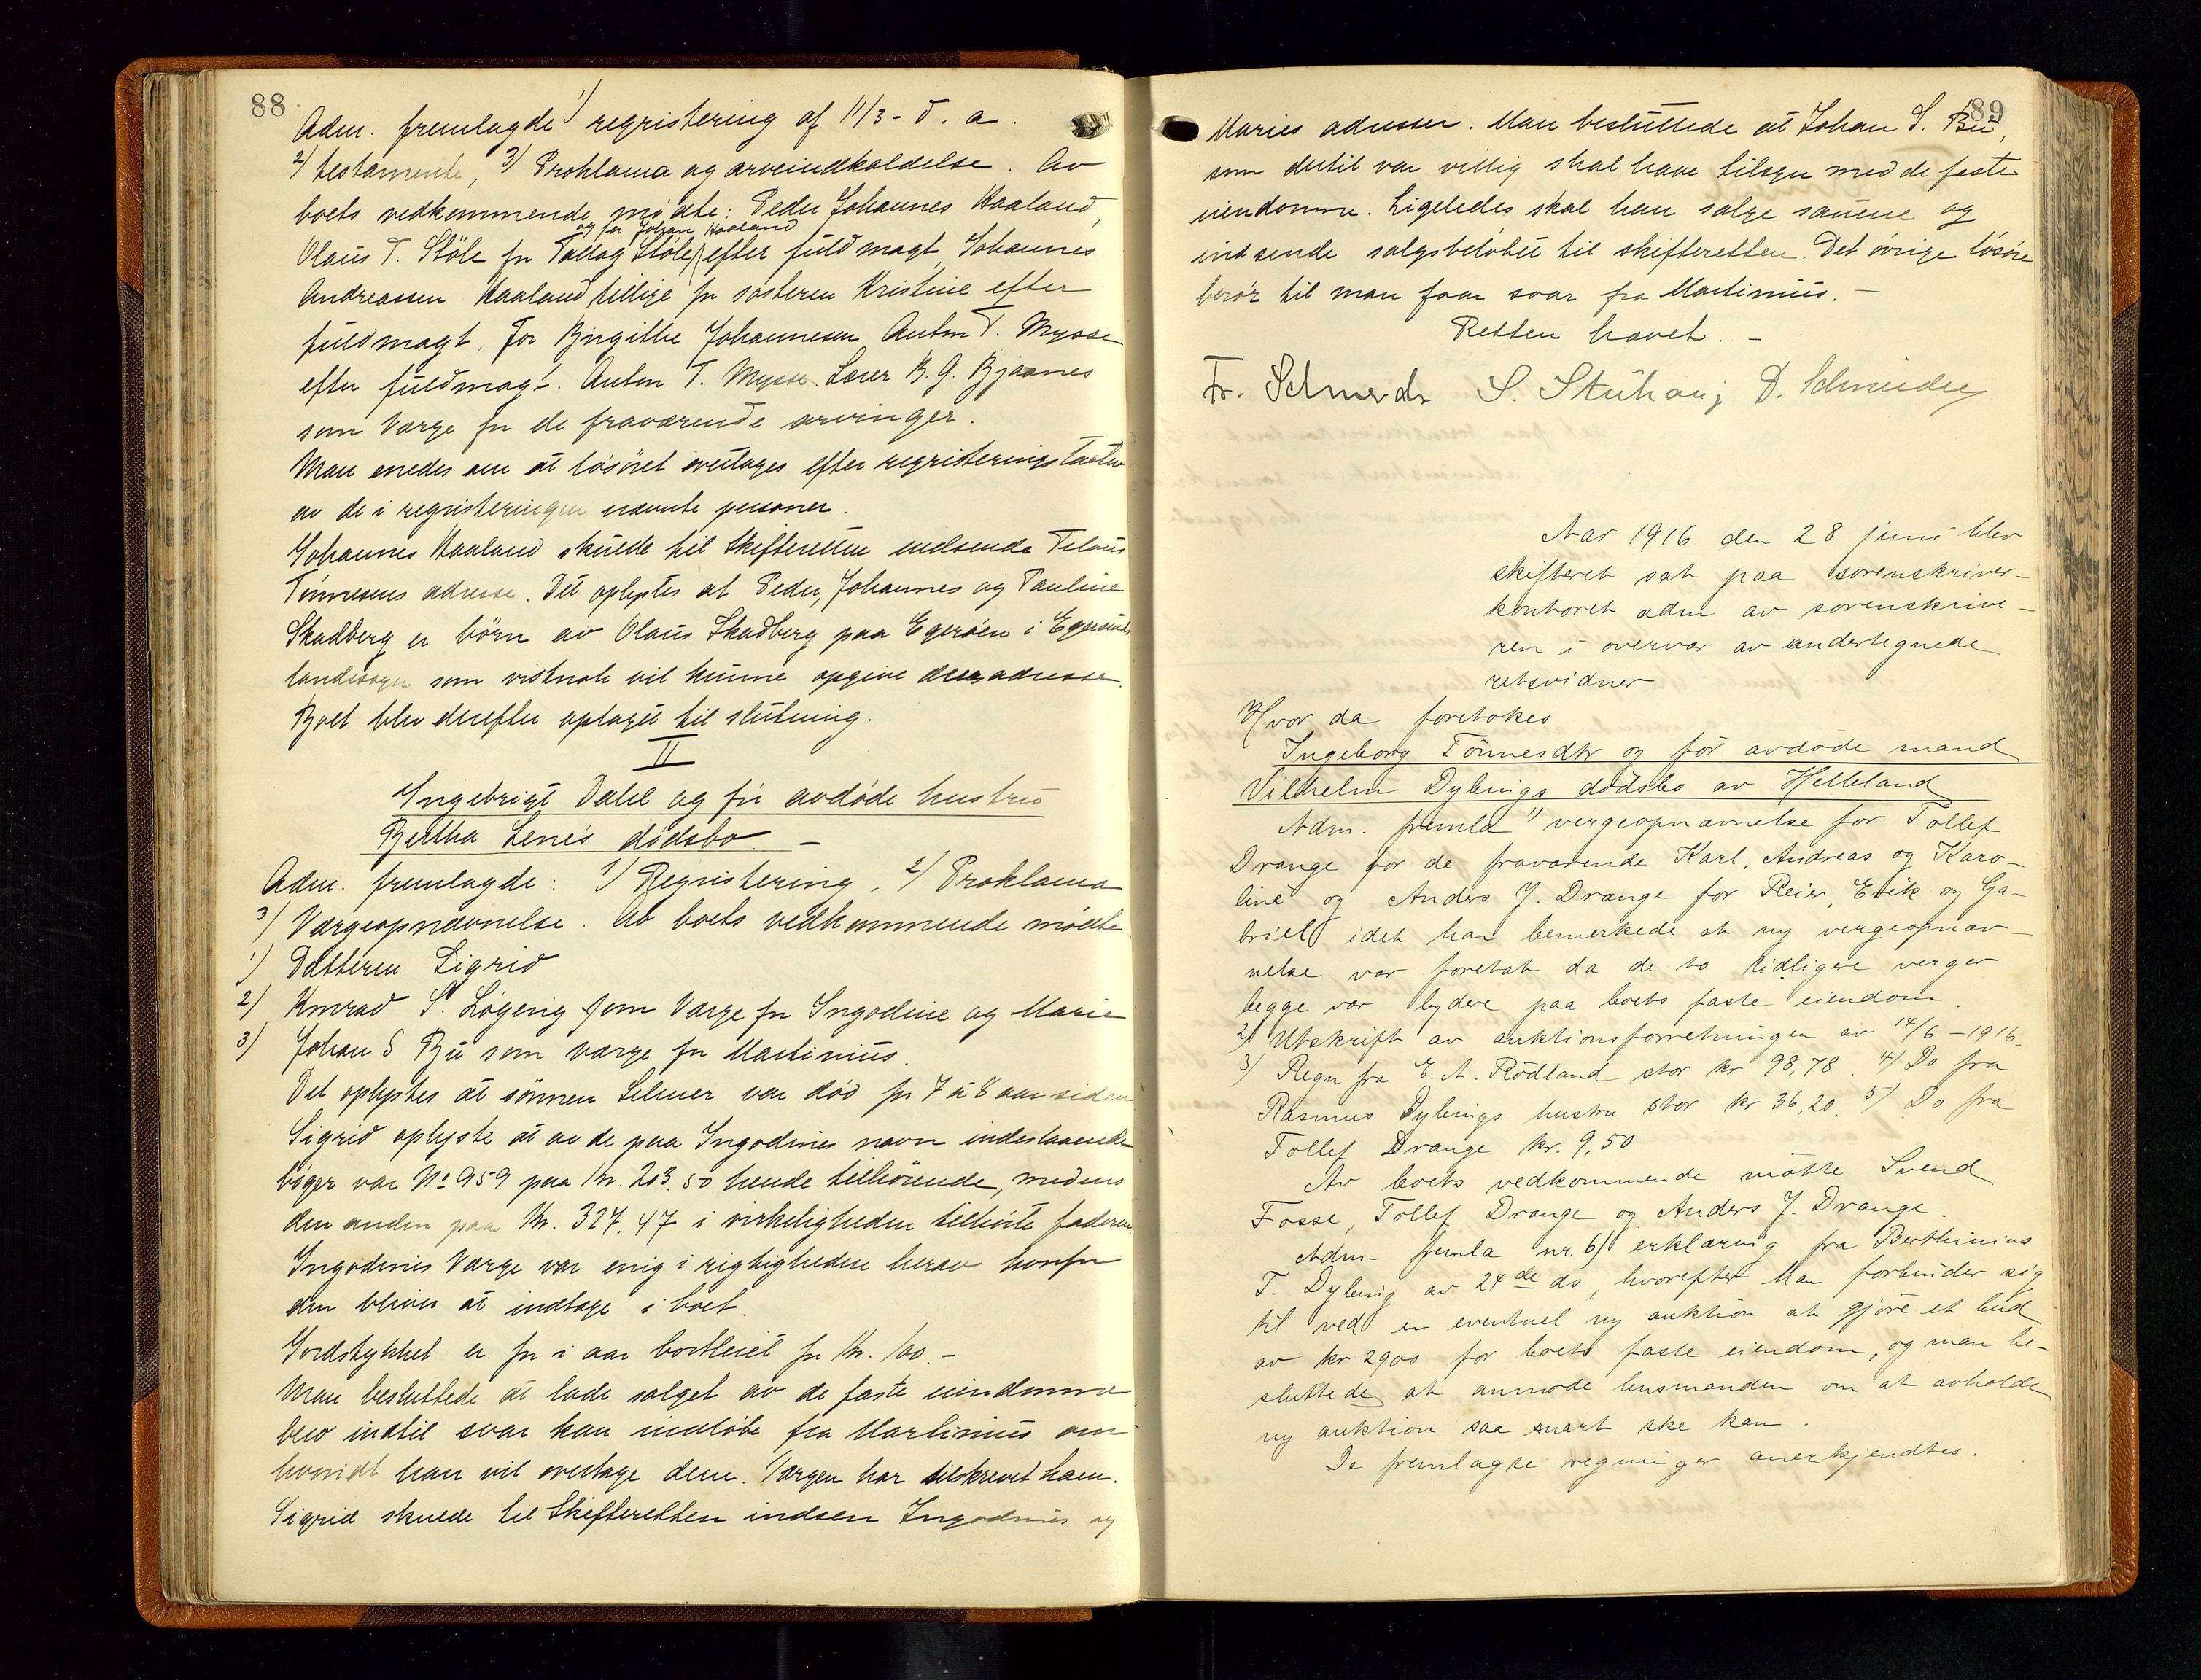 88
Adm. fremlagde 1) regristering af 11/3 - d. a.
2) testamente, 3) Proklama og arveindkaldelse. Av
boets vedkommende mødte: Peder Johannes Haaland,
og for Johan Haaland
Olaus T. Støle for Tollag Støle efter fuldmagt, Johannes
Andreassen Haaland tillige for søsteren Kristine efter
fuldmagt, for Birgithe Johannesen Anton T. Mysse
efter fuldmagt. Anton T. Mysse. Lærer B. G. Bjaanes
som Værge for de fraværende arvinger.
Man enedes om at løsøret overtages efter regristeringstaxten
av de i regristeringen nævnte personer.
Johannes Haaland skulde til Skifteretten indsende Tilaus
Tønnesens adresse. Det oplystes at Peder, Johannes og Pauline
Skadberg er børn av Olaus Skadberg paa Egerøen i Egersunds
landsogn som vistnok vil kunne opgive deres adresse.
Boet blev derefter optaget til slutning.
II
Ingebrigt Dahl og før avdøde hustru
Bertha Lene's dødsbo. –
Adm. fremlagde: 1) Registering, 2) Proklama
3) Værgeopnævnelse. Av boets vedkommende mødte
1) Datteren Sigrid
2) Konrad S. Løgeng som Værge for Ingodine og Marie
3) Johan S Bu som værge for Martinius.
Det oplystes at sønnen Selmer var død for 7 à 8 aar siden
Sigrid oplyste at av de paa Ingodines navn indestaaende
bøger var No 959 paa Kr. 203.50 hende tilhørende, medens
den anden paa Kr. 327.47 i virkeligheden tilhørte faderen.
Ingodines Værge var enig i rigtigheden herav hvorfor
den blives at indtage i boet.
Jordstykket er for i aar bortleiet for Kr. 100.-
Man besluttede at lade salget av de faste eiendomme
bero indtil svar kan indløbe fra Martinius om
hvorvidt han vil overtage dem. Værgen har tilskrevet ham.
Sigrid skulde til Skifteretten indsen Ingodines og
89
Maries adresser. Man besluttede at Johan S. Bu,
som dertil var villig skal have tilsyn med de faste
eiendomme. Ligeledes skal han sælge sauene og
indsende salgsbeløbet til skifteretten. Det øvrige løsøre
berør til man faar svar fra Martinius. –
Retten hævet. –
Fr. Schnerdr S. Stuhaug D. Schneider
Aar 1916 den 28 juni blev
skifteret sat paa sorenskriver-
kontoret adm av sorenskrive-
ren i overvær av undertegnede
retsvidner
Hvor da foretokes
Ingeborg Tönnesdtr og før avdøde mand
Vilhelm Dybings dødsbo av Helleland
Adm. fremla 1) vergeopnævnelse for Tollef
Drange for de fraværende Karl, Andreas og Karo-
line og Anders J. Drange for Reier, Erik og Ga-
briel idet han bemerkede at ny vergeopnæv-
nelse var foretat da de to tidligere verger
begge var bydere paa boets faste eiendom.
2) Utskrift av auktionsforretningen av 14/6 - 1916.
3) Regn fra E. A. Rødland stor kr 98,78. 4) Do fra
Rasmus Dybings hustru stor kr 36,20. 5) Do fra
Tollef Drange kr. 9,50
Av boets vedkommende møtte Svend
Fosse, Tollef Drange og Anders J. Drange.
Adm- fremla nr. 6) erklæring fra Berthinius
T. Dybing av 24de ds, hvorefter han forbinder sig
til ved en eventuel ny auktion at gjøre et bud
av kr 2900 for boets faste eiendom, og man be-
sluttede at anmode lensmanden om at avholde
ny auktion saa snart ske kan.
De fremlagte regninger anerkjendtes.